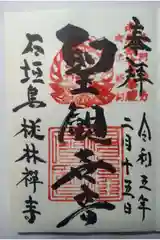 奉拝
令和三年
二月十五日
聖観音
石垣島桃林禅寺